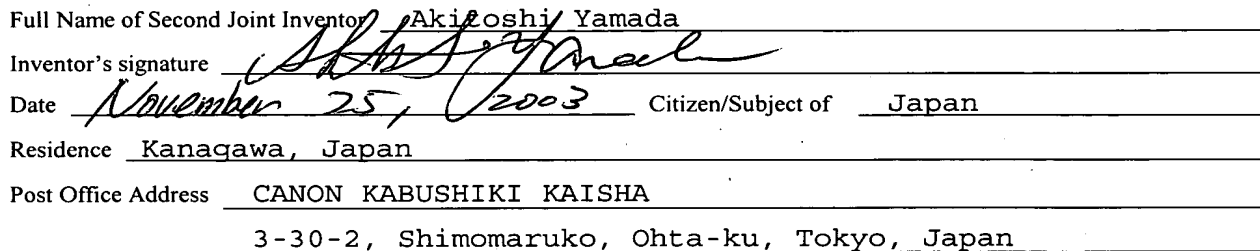 Full Name of Second Joint Inventor Akitoshi Yamada
Inventor's signature
Date November 25, 2003 Citizen/Subject of Japan
Residence Kanagawa, Japan
Post Office Address CANON KABUSHIKI KAISHA
3-30-2, Shimomaruko, Ohta-ku, Tokyo, Japan